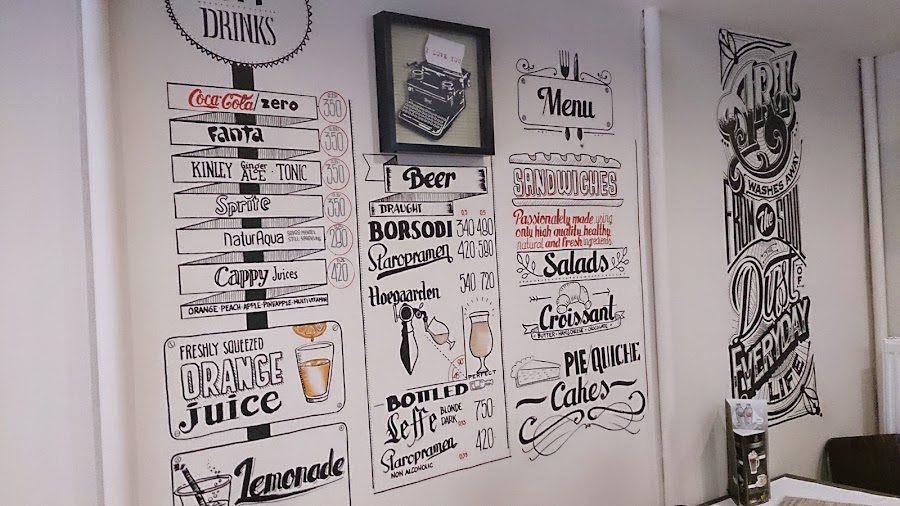 DRINKS
Coca-Cola/zero 350
Fanta 350
KINLEY Ginger ALE · TONIC 350
Sprite 350
NaturAqua 290
Cappy Juices 420
ORANGE-PEACH-APPLE-PINEAPPLE-MULTIVITAMIN
FRESHLY SQUEEZED
ORANGE
juice
Lemonade
I LOVE YOU
Beer
DRAUGHT 0,3 0,5
BORSODI 340 490
Staropramen 420 590
Hoegaarden 540 720
90°
45°
PERFECT
BOTTLED
Leffe BLONDE DARK 750
0,33
Staropramen 420
NON ALCOHOLIC 0,33
Menu
SANDWICHES
Passionately made using
only high quality, healthy
natural and fresh ingredients
Salads
Croissant
BUTTER - HAM&CHEESE - CHOCOLATE
PIE/QUICHE
Cakes
ART
WASHES AWAY
FROM The
Dust OF
EVERYDAY
LIFE